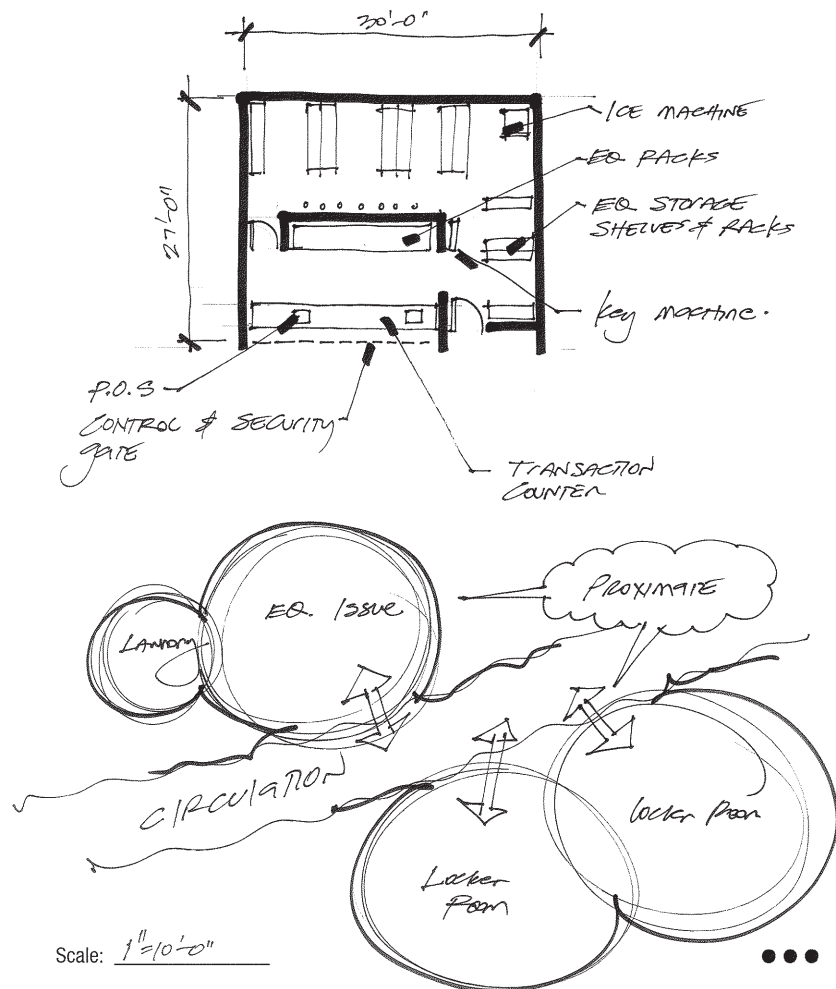 30'-0"
27'-0"
ICE MACHINE
EQ RACKS
EQ STORAGE
SHELVES & RACKS
Key machine.
P.O.S
CONTROL & SECURITY
gATE
TRANSACTION
COUNTER
PROXIMATE
EQ. Issue
LAUNDRY
CIRCULATION
Locker Room
Locker
Room
Scale: 1"=10'-0"